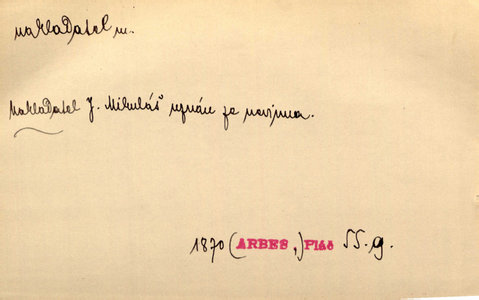 nakladatel m.
Nakladatel J. Mikuláš uznán za nevinna.
1870 (ARBES,) Pláč 55.9.